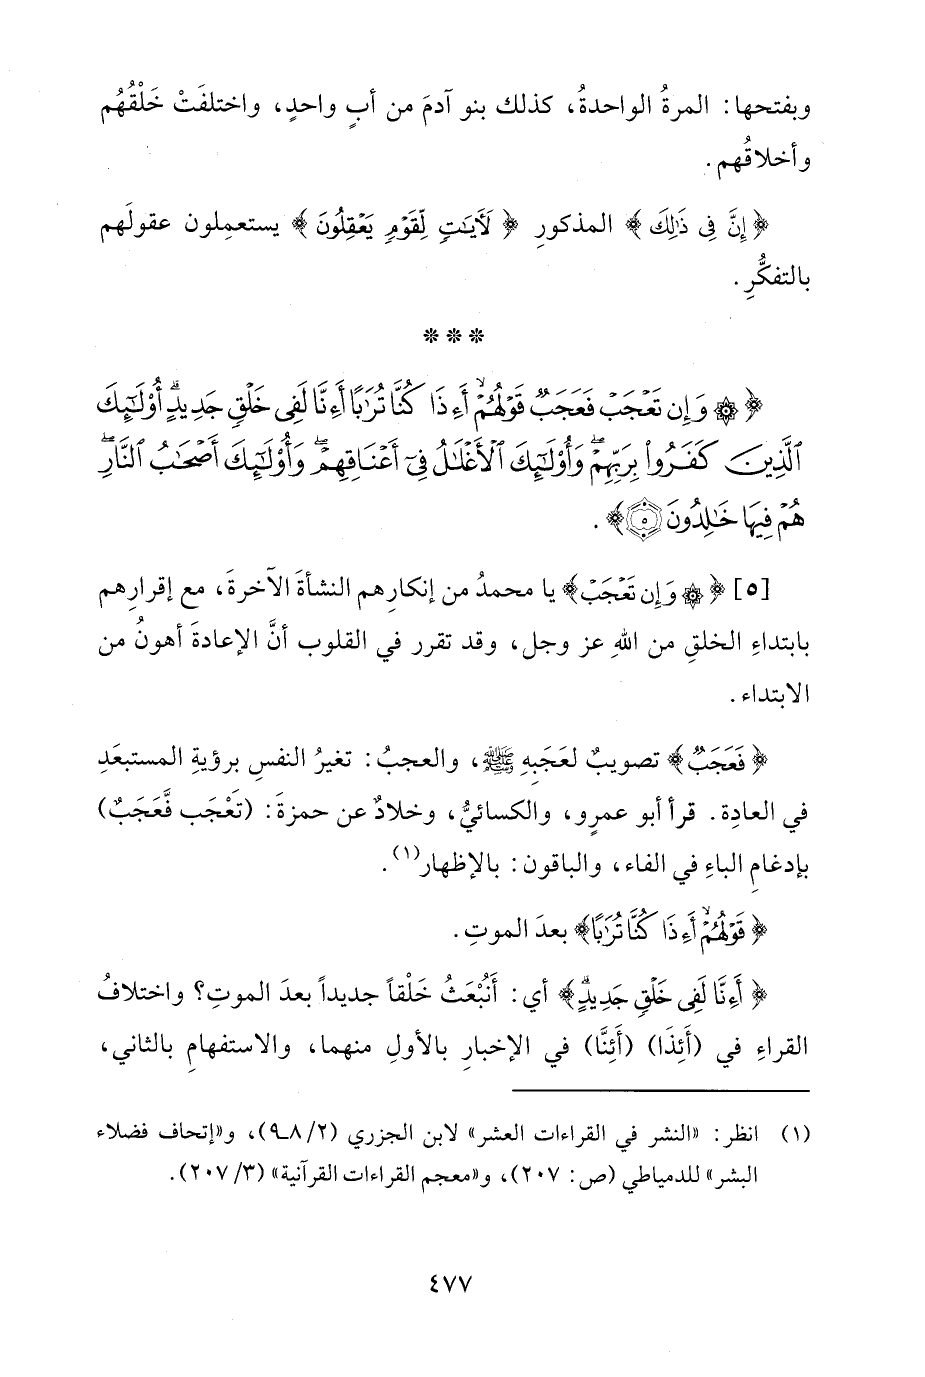 وبفتحها: المرةُ الواحدةُ، كذلك بنو آدمَ من أبٍ واحدٍ، واختلفَتْ خَلْقُهُم
وأخلاقُهم.
﴿إِنَّ فِي ذَٰلِكَ﴾ المذكورِ ﴿لَآيَٰتٍ لِّقَوۡمٍ يَعۡقِلُونَ﴾ يستعمِلون عقولَهم
بالتفكُّرِ.
***
﴿۞ وَإِن تَعۡجَبۡ فَعَجَبٞ قَوۡلُهُمۡ أَءِذَا كُنَّا تُرَٰبًا أَءِنَّا لَفِي خَلۡقٖ جَدِيدٍۗ أُوْلَٰٓئِكَ
ٱلَّذِينَ كَفَرُواْ بِرَبِّهِمۡۖ وَأُوْلَٰٓئِكَ ٱلۡأَغۡلَٰلُ فِيٓ أَعۡنَاقِهِمۡۖ وَأُوْلَٰٓئِكَ أَصۡحَٰبُ ٱلنَّارِۖ
هُمۡ فِيهَا خَٰلِدُونَ ۝٥﴾.
[٥] ﴿۞ وَإِن تَعۡجَبۡ﴾ يا محمدُ من إنكارِهم النشأةَ الآخرةَ، مع إقرارِهم
بابتداءِ الخلقِ من اللهِ عز وجل، وقد تقرر في القلوب أنَّ الإعادةَ أهونُ من
الابتداء.
﴿فَعَجَبٞ﴾ تصويبٌ لعَجَبِهِ ﷺ، والعجبُ: تغيرُ النفسِ برؤيةِ المستبعَدِ
في العادِة. قرأ أبو عمرٍو، والكسائيُّ، وخلادٌ عن حمزةَ: (تَعْجَب فَّعَجَبٌ)
بإدغامِ الباءِ في الفاء، والباقون: بالإظهار(١).
﴿قَوۡلُهُمۡ أَءِذَا كُنَّا تُرَٰبًا﴾ بعدَ الموتِ.
﴿أَءِنَّا لَفِي خَلۡقٖ جَدِيدٍۗ﴾ أي: أَنُبْعَثُ خَلْقاً جديداً بعدَ الموتِ؟ واختلافُ
القراءِ في (أَئِذَا) (أَئِنَّا) في الإخبارِ بالأولِ منهما، والاستفهامِ بالثاني،
(١) انظر: «النشر في القراءات العشر» لابن الجزري (٢/ ٨-٩)، و«إتحاف فضلاء
البشر» للدمياطي (ص: ٢٠٧)، و«معجم القراءات القرآنية» (٣/ ٢٠٧).
٤٧٧